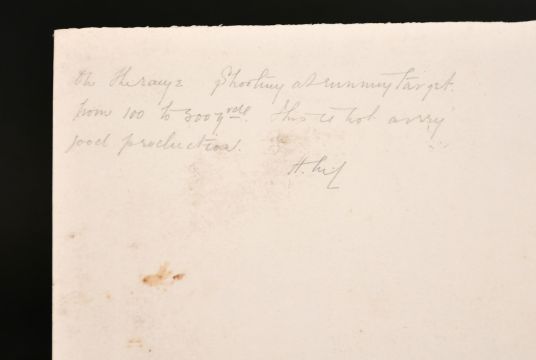 On the range Shooting at running target.
from 100 to 300 yards. This is not a very
good production.